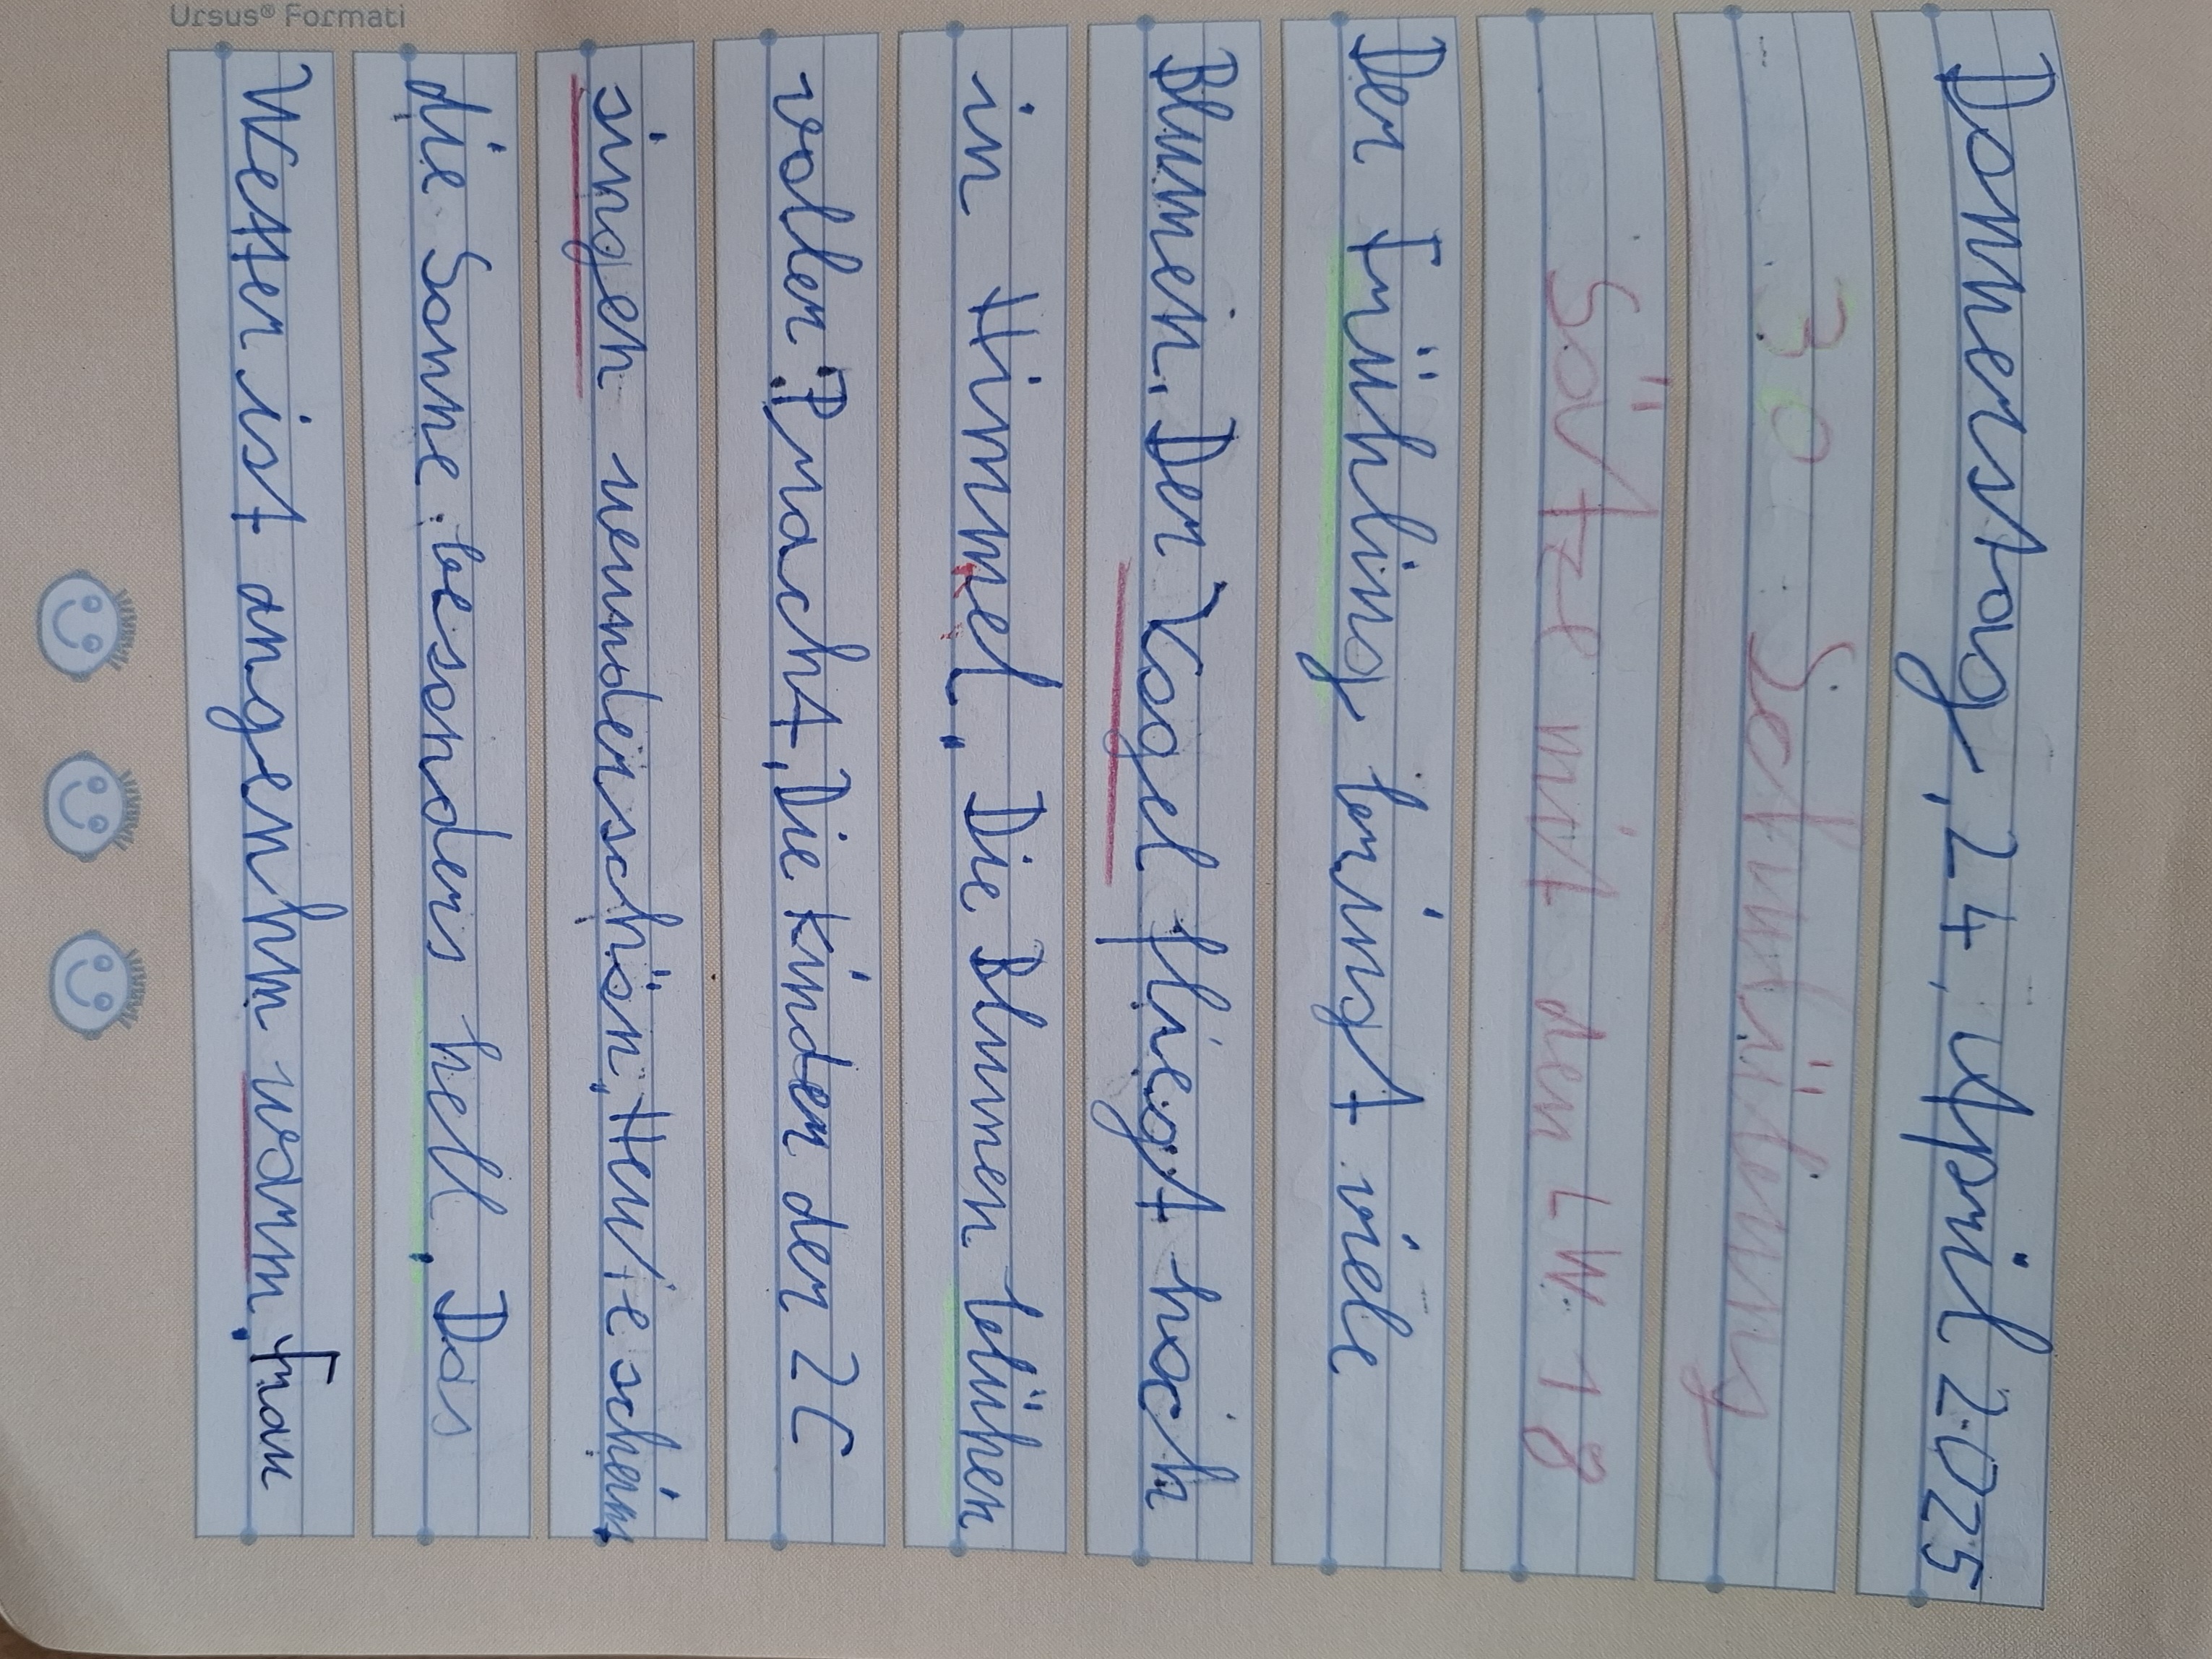 Donnerstag, 24. April 2025
30. Schulübung
Sätze mit den LW 18
Der Frühling bringt viele
Blumen. Der Vogel fliegt hoch
in Himmel. Die Blumen blühen
voller Pracht. Die Kinder der 2C
singen wunderschön. Heute schein
die Sonne besonders hell. Das
Wetter ist angenhm warm. Frau
Ursus® Formati